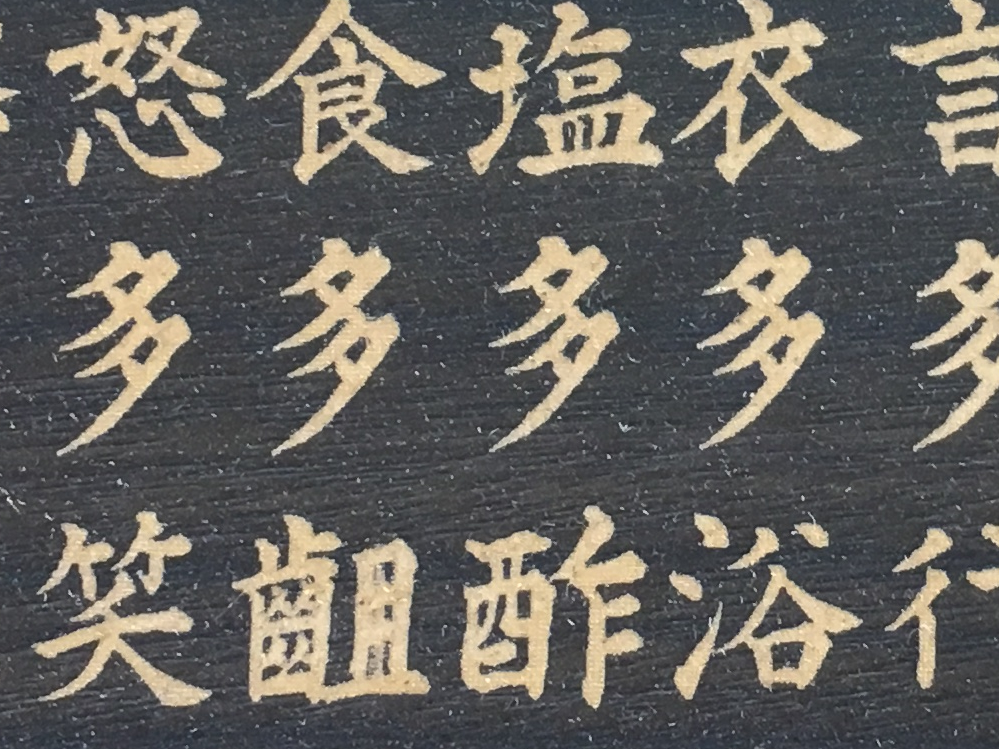 言多行
衣多浴
塩多酢
食多齟
怒多笑